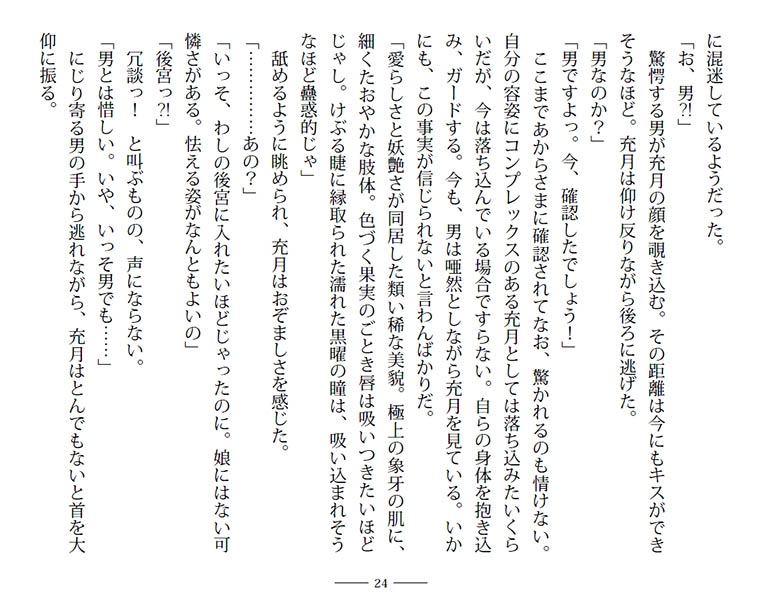 に混迷しているようだった。
「お、男?!」
　驚愕する男が充月の顔を覗き込む。その距離は今にもキスができ
そうなほど。充月は仰け反りながら後ろに逃げた。
「男なのか？」
「男ですよっ。今、確認したでしょう！」
　ここまであからさまに確認されてなお、驚かれるのも情けない。
自分の容姿にコンプレックスのある充月としては落ち込みたいくら
いだが、今は落ち込んでいる場合ですらない。自らの身体を抱き込
み、ガードする。今も、男は唖然としながら充月を見ている。いか
にも、この事実が信じられないと言わんばかりだ。
「愛らしさと妖艶さが同居した類い稀な美貌。極上の象牙の肌に、
細くたおやかな肢体。色づく果実のごとき唇は吸いつきたいほど
じゃし。けぶる睫に縁取られた濡れた黒曜の瞳は、吸い込まれそう
なほど蠱惑的じゃ」
　舐めるように眺められ、充月はおぞましさを感じた。
「……………あの？」
「いっそ、わしの後宮に入れたいほどじゃったのに。娘にはない可
憐さがある。怯える姿がなんともよいの」
「後宮っ?!」
　冗談っ！　と叫ぶものの、声にならない。
「男とは惜しい。いや、いっそ男でも……」
　にじり寄る男の手から逃れながら、充月はとんでもないと首を大
仰に振る。
24